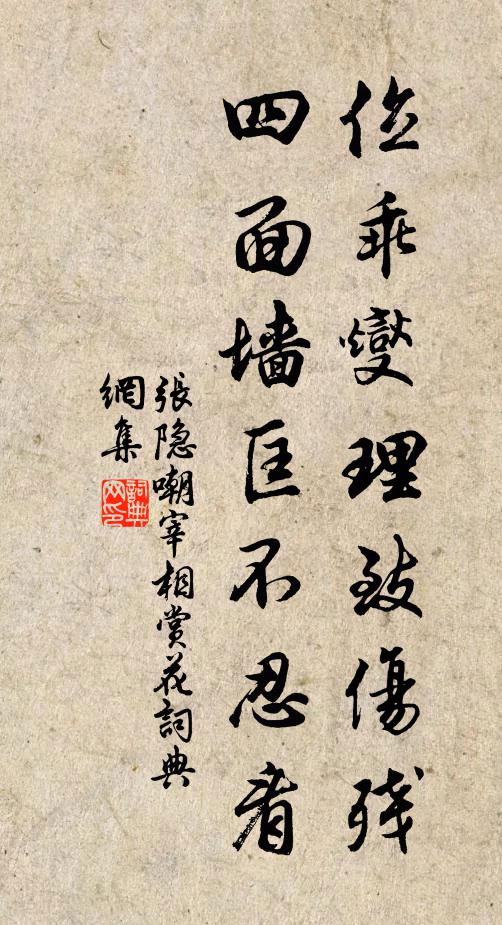 位乖燮理致傷残
四面墙匡不忍看
張隐嘲宰相賞花詞典
網集
詞典
网印